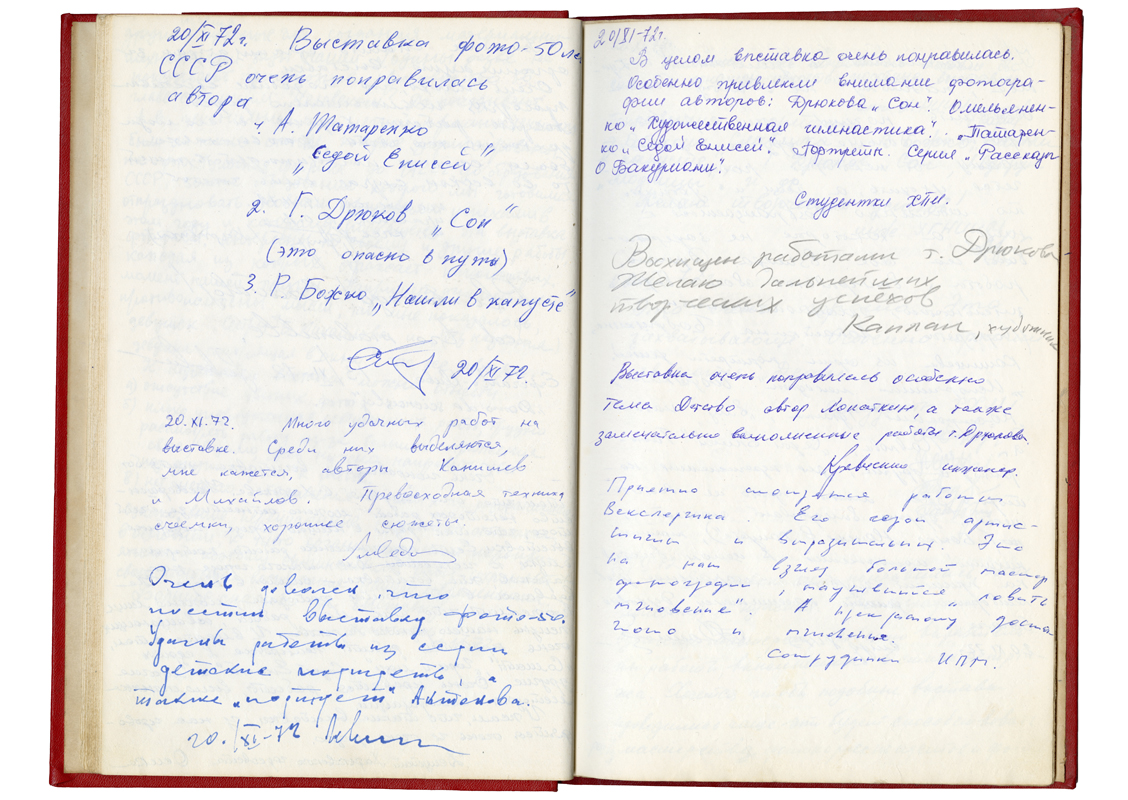 20/XI 72г. Выставка фото-50 лет
СССР очень понравилась
автора
1. А. Татаренко
„Седой Енисей"
2. Г. Дрюков „Сон"
(это опасно в пути)
3. Р. Божко „Нашли в капусте"
20/XI 72.
20.XI.72. Много удачных работ на
выставке. Среди них выделяются,
мне кажется, авторы Канишев
и Михайлов. Превосходная техника
съемки, хорошие сюжеты.
Очень доволен, что
посетил выставку фото-50.
Удачны работы из серии
детские портреты, а
также „портрет" Антонова.
20./XI-72
20/XI-72г.
В целом выставка очень понравилась.
Особенно привлекли внимание фотогра-
фии авторов: Дрюкова „Сон". Омельянен-
ко „Художественная гимнастика". „Татарен-
ко „Седой Енисей". Портреты. Серия „Рассказы
о Бакуриани".
Студентки ХПИ.
Восхищен работами т. Дрюкова
Желаю дальнейших
творческих успехов
Каплан, художник
Выставка очень понравилась особенно
тема Детство автор Лопаткин, а также
замечательно выполненные работы т. Дрюкова.
инженер.
Приятно смотрятся работы
Векслерчика. Его герои артис-
тичны и выразительны. Это
на наш взгляд большой мастер
фотографии, научившийся „ловить
мгновение". А прекрасному доста-
точно и мгновения.
Сотрудники